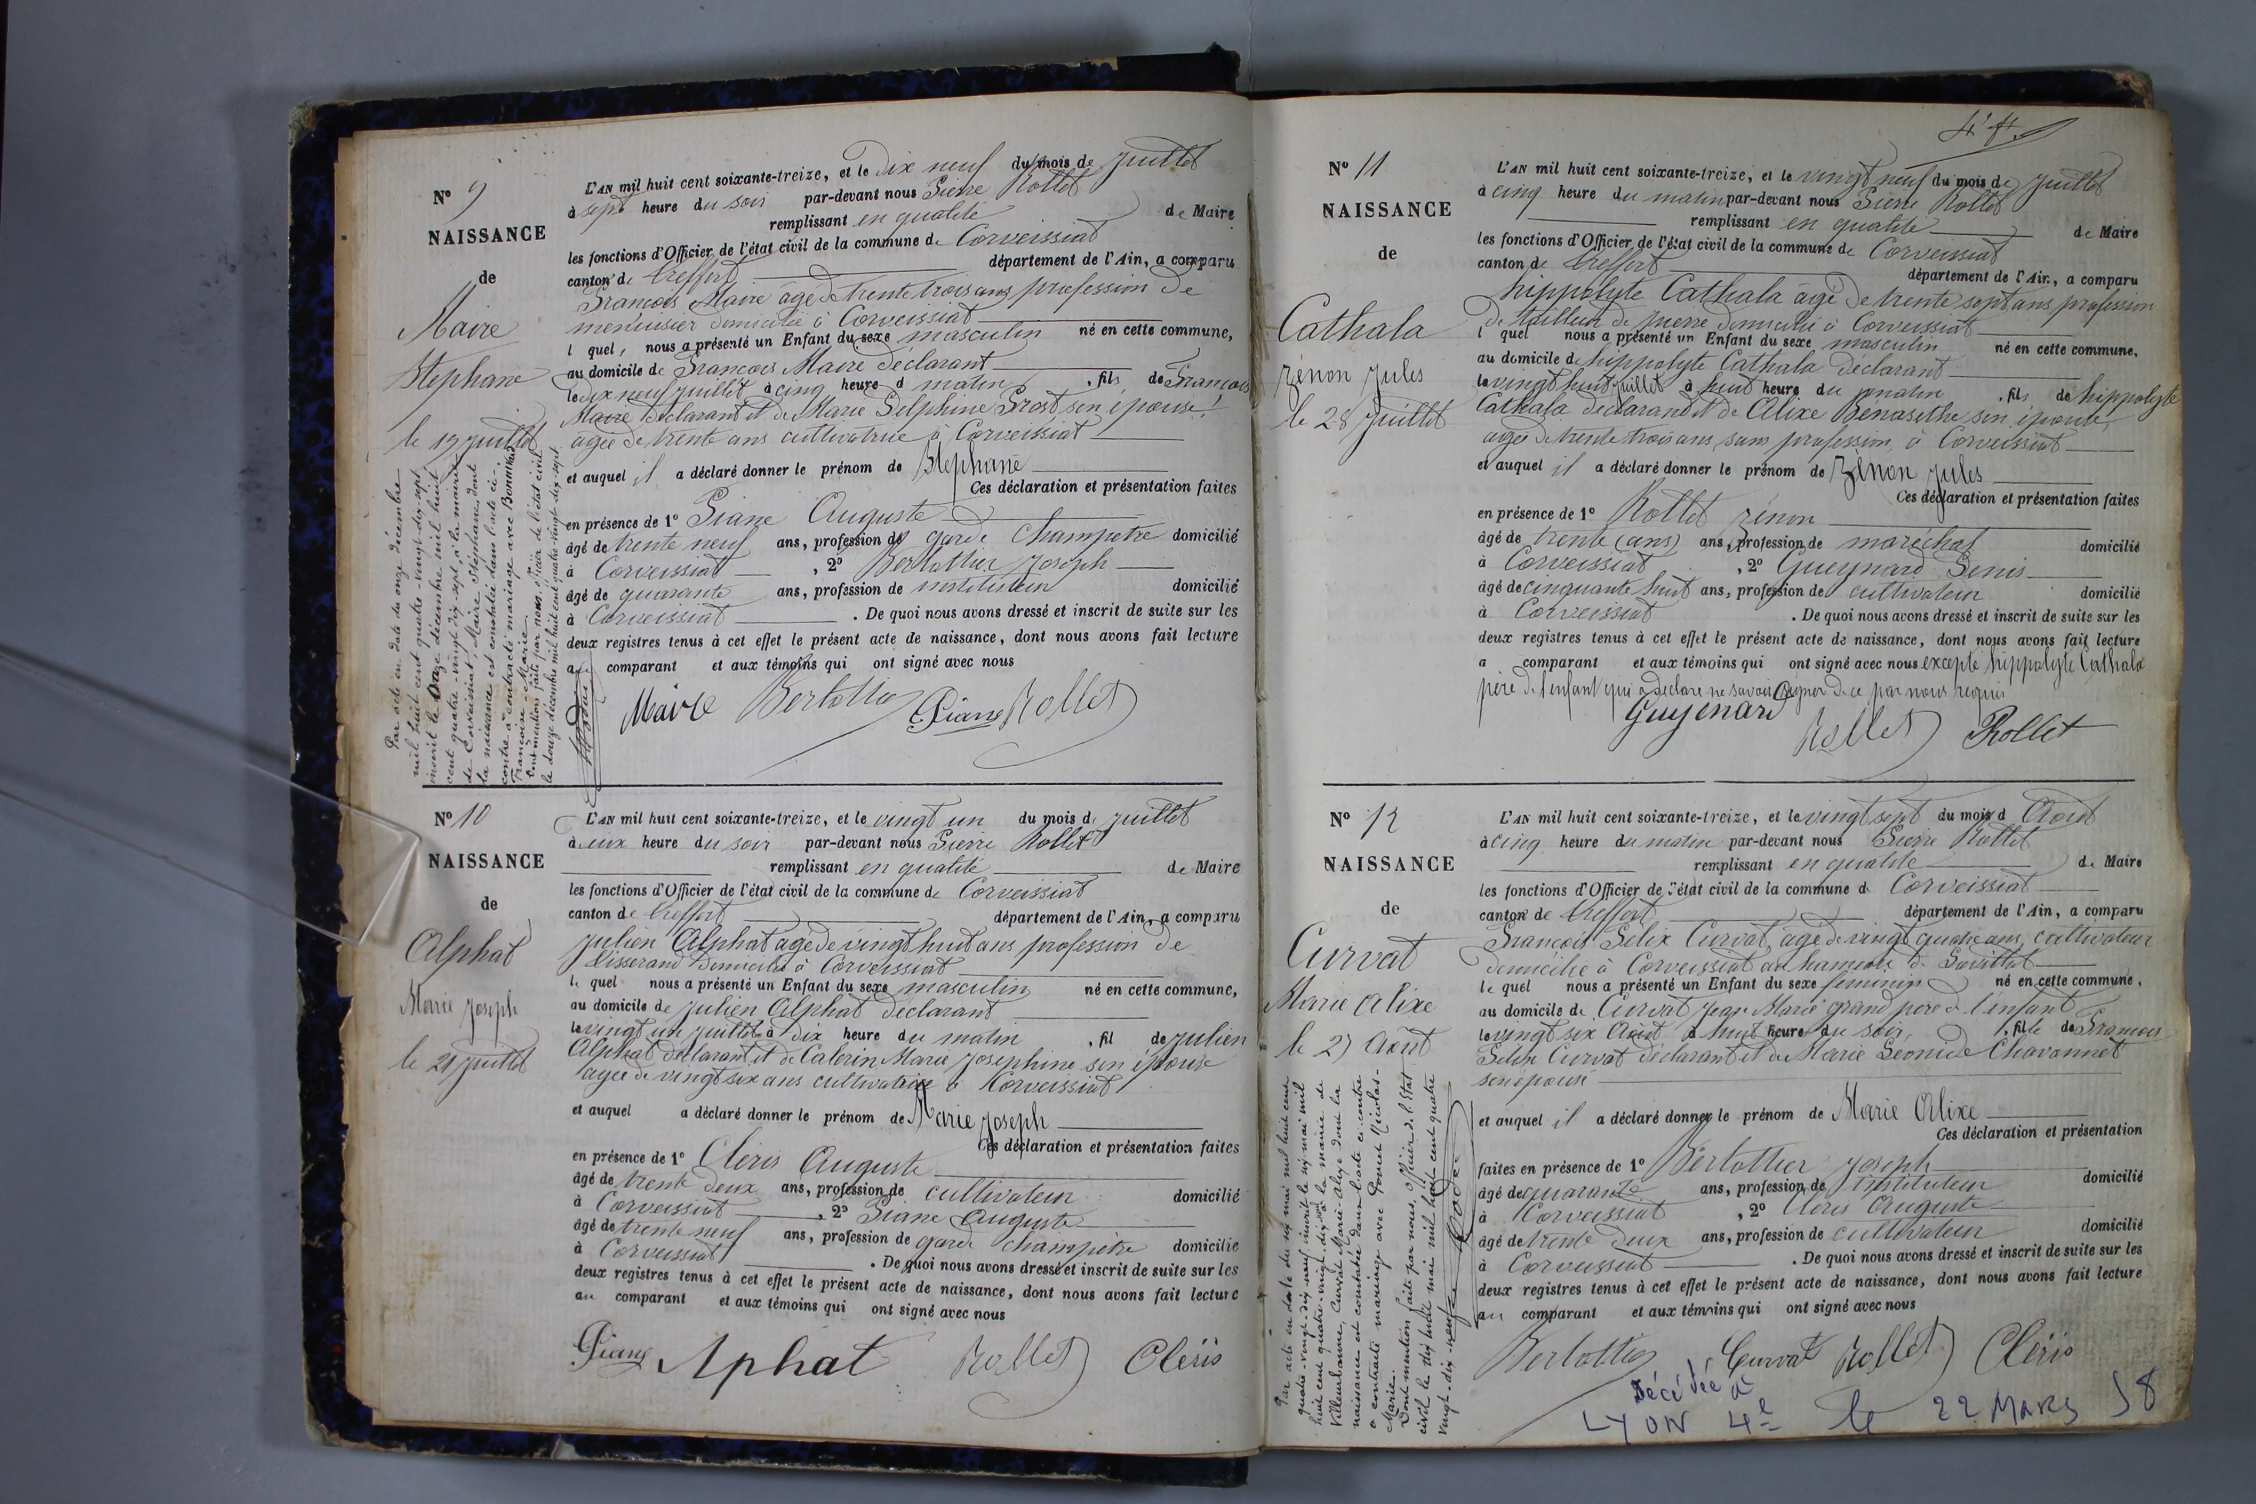 N° 9
NAISSANCE
de
Maire
Stephane
le 19 juillet
L'AN mil huit cent soixante-treize, et le Dix neuf du mois de juillet
à sept heure du soir par-devant nous Pierre Rollet
remplissant en qualité de Maire
les fonctions d'Officier de l'état civil de la commune de Corveissiat
canton de Treffort département de l'Ain, a comparu
François Maire âgé de trente trois ans profession de
menuisier domicilié à Corveissiat
l quel, nous a présenté un Enfant du sexe masculin né en cette commune,
au domicile de François Maire déclarant
le dix neuf juillet à cinq heure d matin, fils de François
Maire déclarant et de Marie Delphine Prost son épouse
agée de trente ans cultivatrice à Corveissiat
et auquel il a déclaré donner le prénom de Stephane
Ces déclaration et présentation faites
en présence de 1° Piane Auguste
âgé de trente neuf ans, profession de garde champetre domicilié
à Corveissiat, 2° Bertottier Joseph
âgé de quarante ans, profession de instituteur domicilié
à Corveissiat. De quoi nous avons dressé et inscrit de suite sur les
deux registres tenus à cet effet le présent acte de naissance, dont nous avons fait lecture
au comparant et aux témoins qui ont signé avec nous
Maire Bertottier Piane Rollet
Par acte en date du onze décembre
mil huit cent quatre-vingt-dix-sept
inscrit le onze décembre mil huit
cent quatre-vingt-dix-sept, à la mairie
de Corveissiat, Maire Stéphane, dont
la naissance est constatée dans l'acte ci-
contre, a contracté mariage avec Bonnivard
Françoise-Marie.
Dont mention faite par nous, officier de l'état civil
le douze décembre mil huit cent quatre-vingt-dix-sept
N° 10
NAISSANCE
de
Alphat
Marie Joseph
le 21 juillet
L'AN mil huit cent soixante-treize, et le vingt un du mois de juillet
à deux heure du soir par-devant nous Pierre Rollet
remplissant en qualité de Maire
les fonctions d'Officier de l'état civil de la commune de Corveissiat
canton de Treffort département de l'Ain, a comparu
Julien Alphat agé de vingt huit ans profession de
tisserand domicilié à Corveissiat
le quel nous a présenté un Enfant du sexe masculin né en cette commune,
au domicile de Julien Alphat déclarant
le vingt un juillet à dix heure du matin, fil de Julien
Alphat déclarant et de Calerin Marie Josephine son épouse
agée de vingt six ans cultivatrice à Corveissiat
et auquel a déclaré donner le prénom de Marie Joseph
Ces déclaration et présentation faites
en présence de 1° Cléris Auguste
âgé de trente deux ans, profession de cultivateur domicilié
à Corveissiat, 2° Piane Auguste
âgé de trente neuf ans, profession de garde champêtre domicilié
à Corveissiat. De quoi nous avons dressé et inscrit de suite sur les
deux registres tenus à cet effet le présent acte de naissance, dont nous avons fait lecture
au comparant et aux témoins qui ont signé avec nous
Piane Aphat Rollet Cléris
N° 11
NAISSANCE
de
Cathala
Zénon Jules
le 28 juillet
L'AN mil huit cent soixante-treize, et le vingt neuf du mois de juillet
à cinq heure du matin par-devant nous Pierre Rollet
remplissant en qualité de Maire
les fonctions d'Officier de l'état civil de la commune de Corveissiat
canton de Treffort département de l'Ain, a comparu
hippolyte Cathala âgé de trente sept ans profession
de tailleur de pierre domicilié à Corveissiat
l quel nous a présenté un Enfant du sexe masculin né en cette commune,
au domicile de hippolyte Cathala déclarant
le vingt huit juillet à huit heure du matin, fils de hippolyte
Cathala déclarant et de Alixe Benasethe son épouse,
agée de trente trois ans, sans profession, à Corveissiat
et auquel il a déclaré donner le prénom de Zénon Jules
Ces déclaration et présentation faites
en présence de 1° Rollet Zénon
âgé de trente (ans) ans, profession de maréchal domicilié
à Corveissiat, 2° Gueynard Denis
âgé de cinquante huit ans, profession de cultivateur domicilié
à Corveissiat. De quoi nous avons dressé et inscrit de suite sur les
deux registres tenus à cet effet le présent acte de naissance, dont nous avons fait lecture
a comparant et aux témoins qui ont signé avec nous excepté hippolyte Cathala
père de l'enfant qui a déclaré ne savoir signer de ce par nous requis
Guyenard Rollet Rollet
N° 12
NAISSANCE
de
Curvat
Marie Alixe
le 27 Août
L'AN mil huit cent soixante-treize, et le vingt sept du mois d Août
à cinq heure du matin par-devant nous Pierre Rollet
remplissant en qualité de Maire
les fonctions d'Officier de l'état civil de la commune d Corveissiat
canton de Treffort département de l'Ain, a comparu
François Félix Curvat, âgé de vingt quatre ans, cultivateur
domicilié à Corveissiat au hameau de
le quel nous a présenté un Enfant du sexe feminin né en cette commune,
au domicile de Curvat Jean Marie grand père de l'enfant
le vingt six Août à huit heure du soir, fille de François
Félix Curvat déclarant et de Marie Léonide Chavannet
son épouse
et auquel il a déclaré donner le prénom de Marie Alixe
Ces déclaration et présentation
faites en présence de 1° Bertottier Joseph domicilié
âgé de quarante ans, profession de Instituteur
à Corveissiat, 2° Cléris Auguste
âgé de trente deux ans, profession de cultivateur domicilié
à Corveissiat. De quoi nous avons dressé et inscrit de suite sur les
deux registres tenus à cet effet le présent acte de naissance, dont nous avons fait lecture
au comparant et aux témoins qui ont signé avec nous
Bertottier Curvat Rollet Cléris
Décédée à
LYON 4e le 22 MARS 58
Par acte en date du six mai mil huit cent
quatre-vingt-dix-neuf inscrit le six mai mil
huit cent quatre-vingt-dix-neuf à la mairie de
Villeurbanne, Curvat Marie-Alixe dont la
naissance est constatée dans l'acte ci-contre
a contracté mariage avec Poncet Nicolas-
Marie.
Dont mention faite par nous, officier de l'état
civil le dix huit mai mil huit cent quatre
vingt-dix-neuf